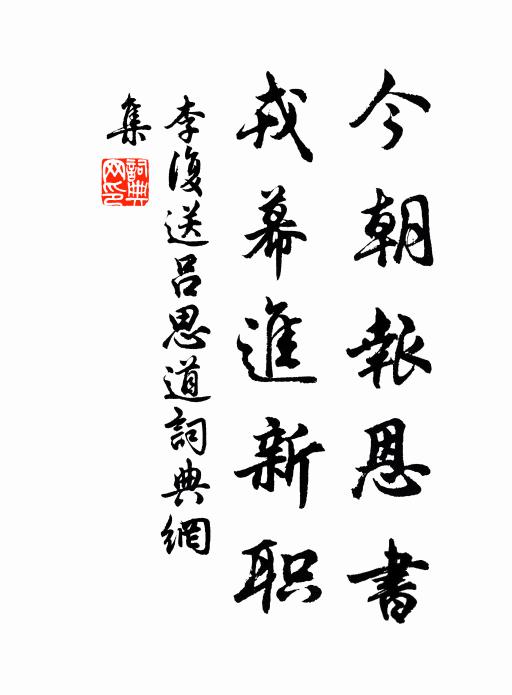 今朝報恩書
戎幕進新职
李復送呂思道詞典網
集
詞典网印